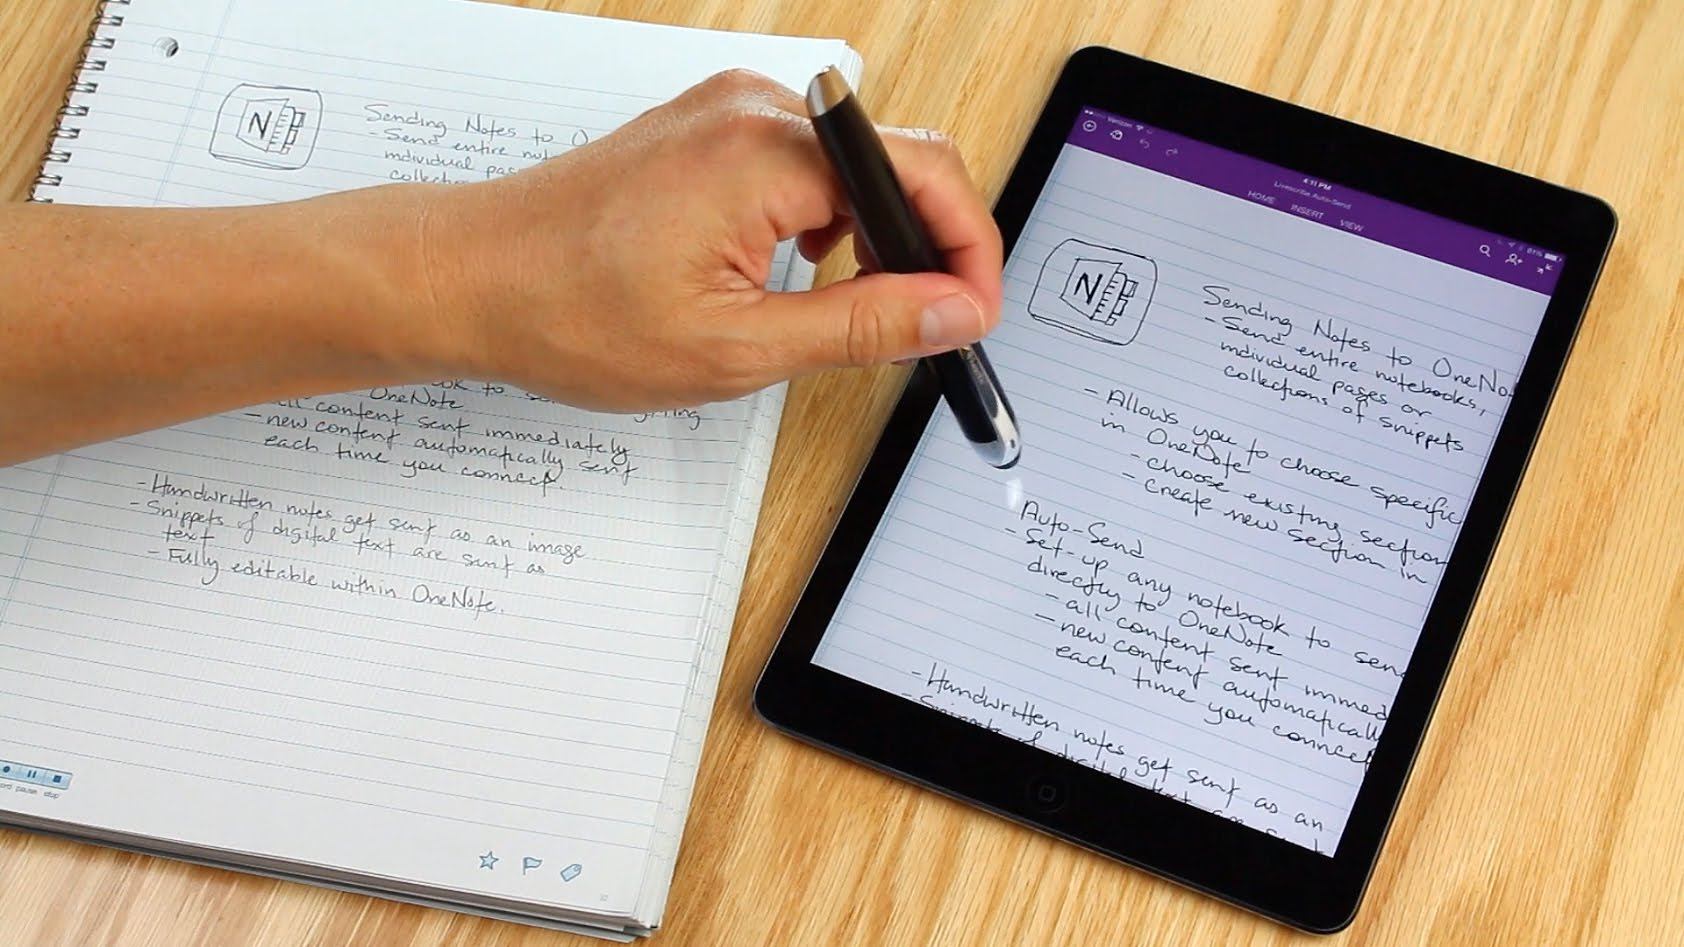 N
Sending Notes to O
- Send entire not
individual pag
collection
OneNote
all content sent immediately
- new content automatically sent
each time you connect.
- Handwritten notes get sent as an image
- Snippets of digital text are sent as
text
- Fully editable within OneNote.
pause stop
Verizon
4:11 PM
81%
Livescribe Auto-Send
HOME INSERT VIEW
N
Sending Notes to OneNo
- Send entire notebooks,
individual pages or
collections of snippets
- Allows you to choose specific
in OneNote
- choose existing section
- create new section in
Auto-Send
- Set-up any notebook to send
directly to OneNote
- all content sent immed
- new content automatically
each time you connect
- Handwritten notes get sent as an
- Snippets of digital text are sent